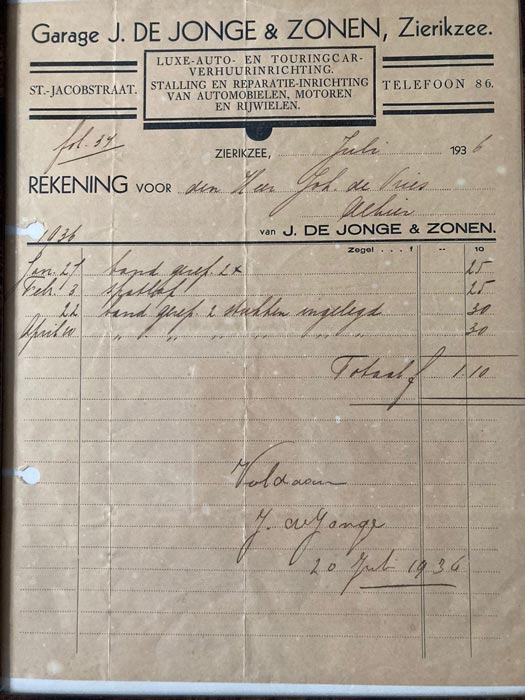 Garage J. DE JONGE & ZONEN, Zierikzee.
ST.-JACOBSTRAAT.
LUXE-AUTO- EN TOURINGCAR-
VERHUURINRICHTING.
STALLING EN REPARATIE-INRICHTING
VAN AUTOMOBIELEN, MOTOREN
EN RIJWIELEN.
TELEFOON 86.
fol. 37
ZIERIKZEE, Juli 1936
REKENING VOOR den Heer Joh. de Vries
Alhier
1936
van J. DE JONGE & ZONEN.
Zegel . . . f -- 10
Jan. 27 band gerep. 2 x 25
Febr. 3 spatlap 25
22 band gerep. 2 stukken ingelegd 30
April 10 " " " " " 30
Totaal f 1.10
Voldaan
J. de Jonge
20 Juli 1936